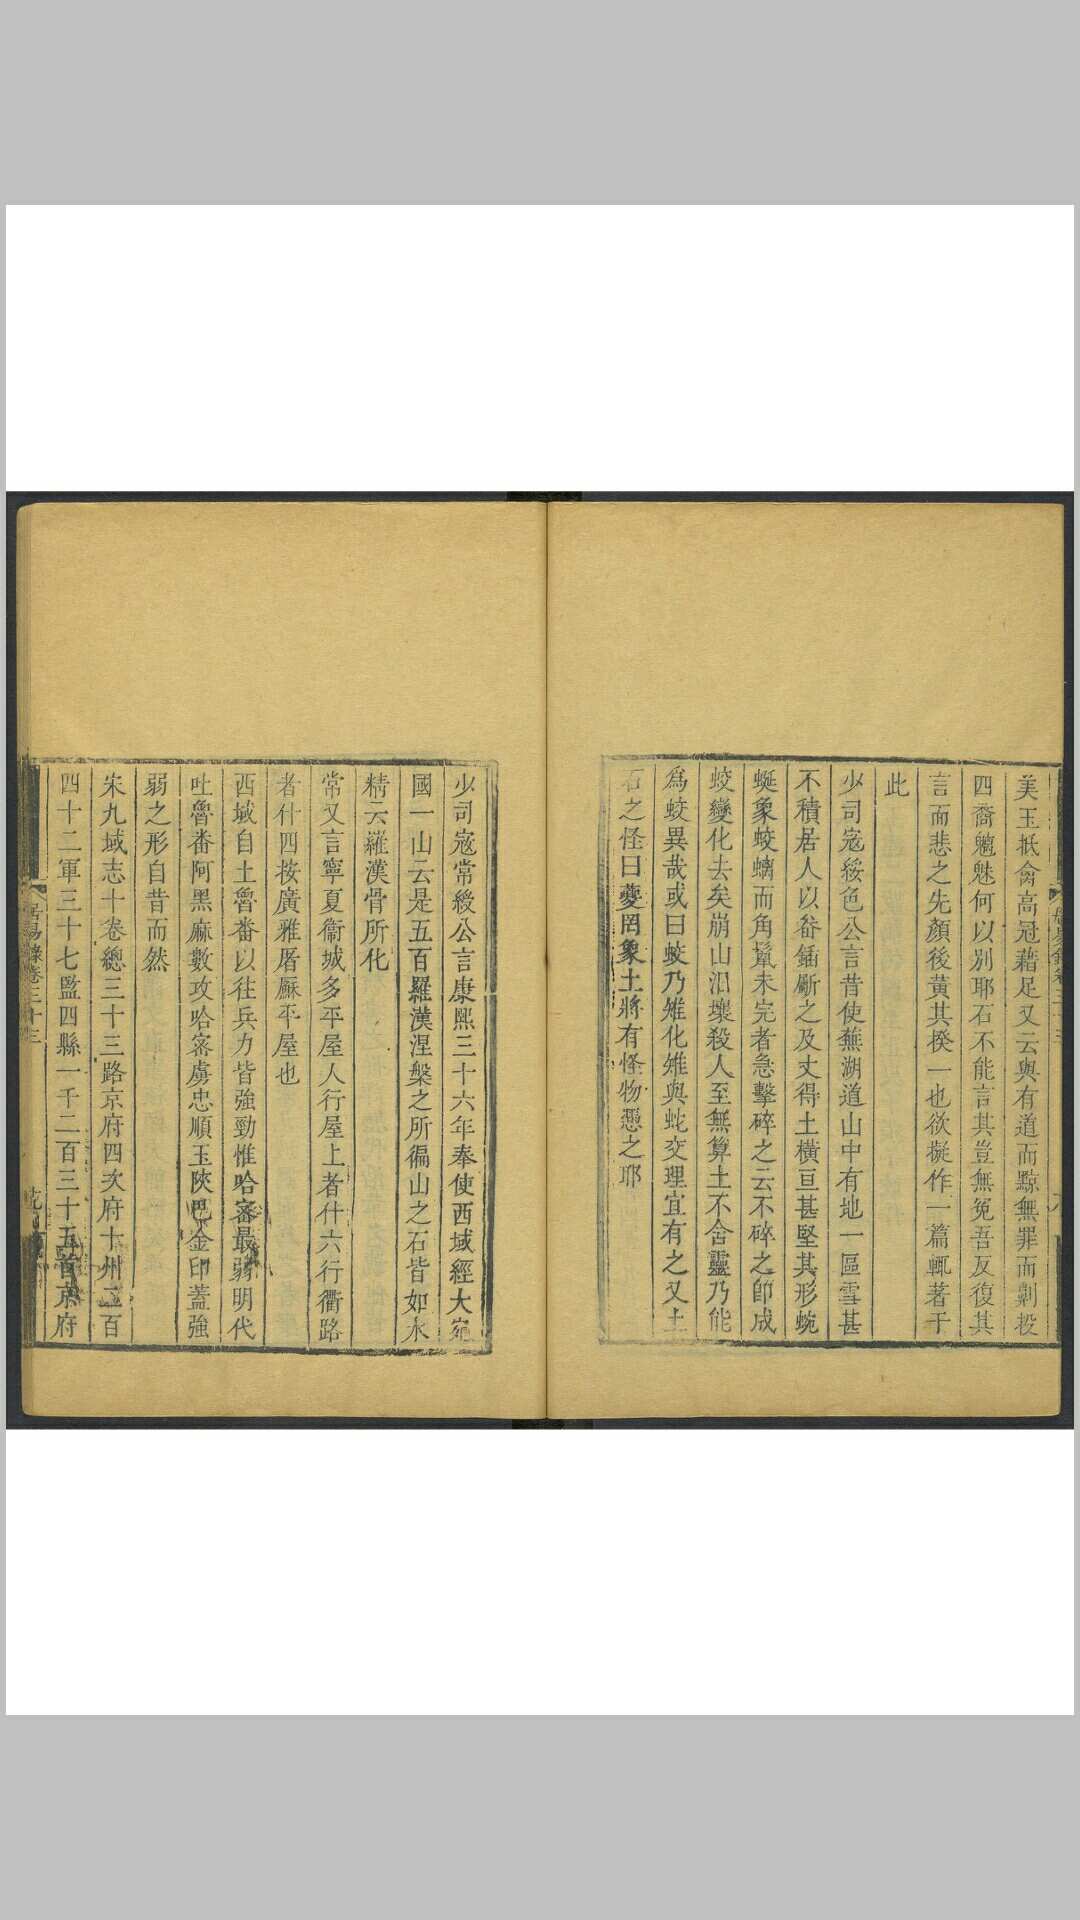 美玉抵禽高冠藉足又云與有道而黥無罪而劓投
四裔魑魅何以別耶石不能言其豈無冤吾反復其
言而悲之先顏後黃其揆一也欲擬作一篇輒著于
此
少司寇綏色公言昔使蕪湖道山中有地一區雪甚
不積居人以畚鍤斸之及丈得土橫亘甚堅其形蜿
蜒象蛟螭而角鬣未完者急擊碎之云不碎之卽成
蛟變化去矣崩山汩壤殺人至無算土不舍靈乃能
爲蛟異哉或曰蛟乃雉化雉與蛇交理宜有之又土
石之怪曰夔罔象土將有怪物憑之耶
少司寇常綬公言康熙三十六年奉使西域經大宛
國一山云是五百羅漢涅槃之所徧山之石皆如水
精云羅漢骨所化
常又言寧夏衞城多平屋人行屋上者什六行衢路
者什四按廣雅屠廜平屋也
西域自土魯番以往兵力皆強勁惟哈密最弱明代
吐魯番阿黑麻數攻哈密虜忠順王陝巴金印蓋強
弱之形自昔而然
宋九域志十卷總三十三路京府四次府十州二百
四十二軍三十七監四縣一千二百三十五首京府
居易錄卷三十三